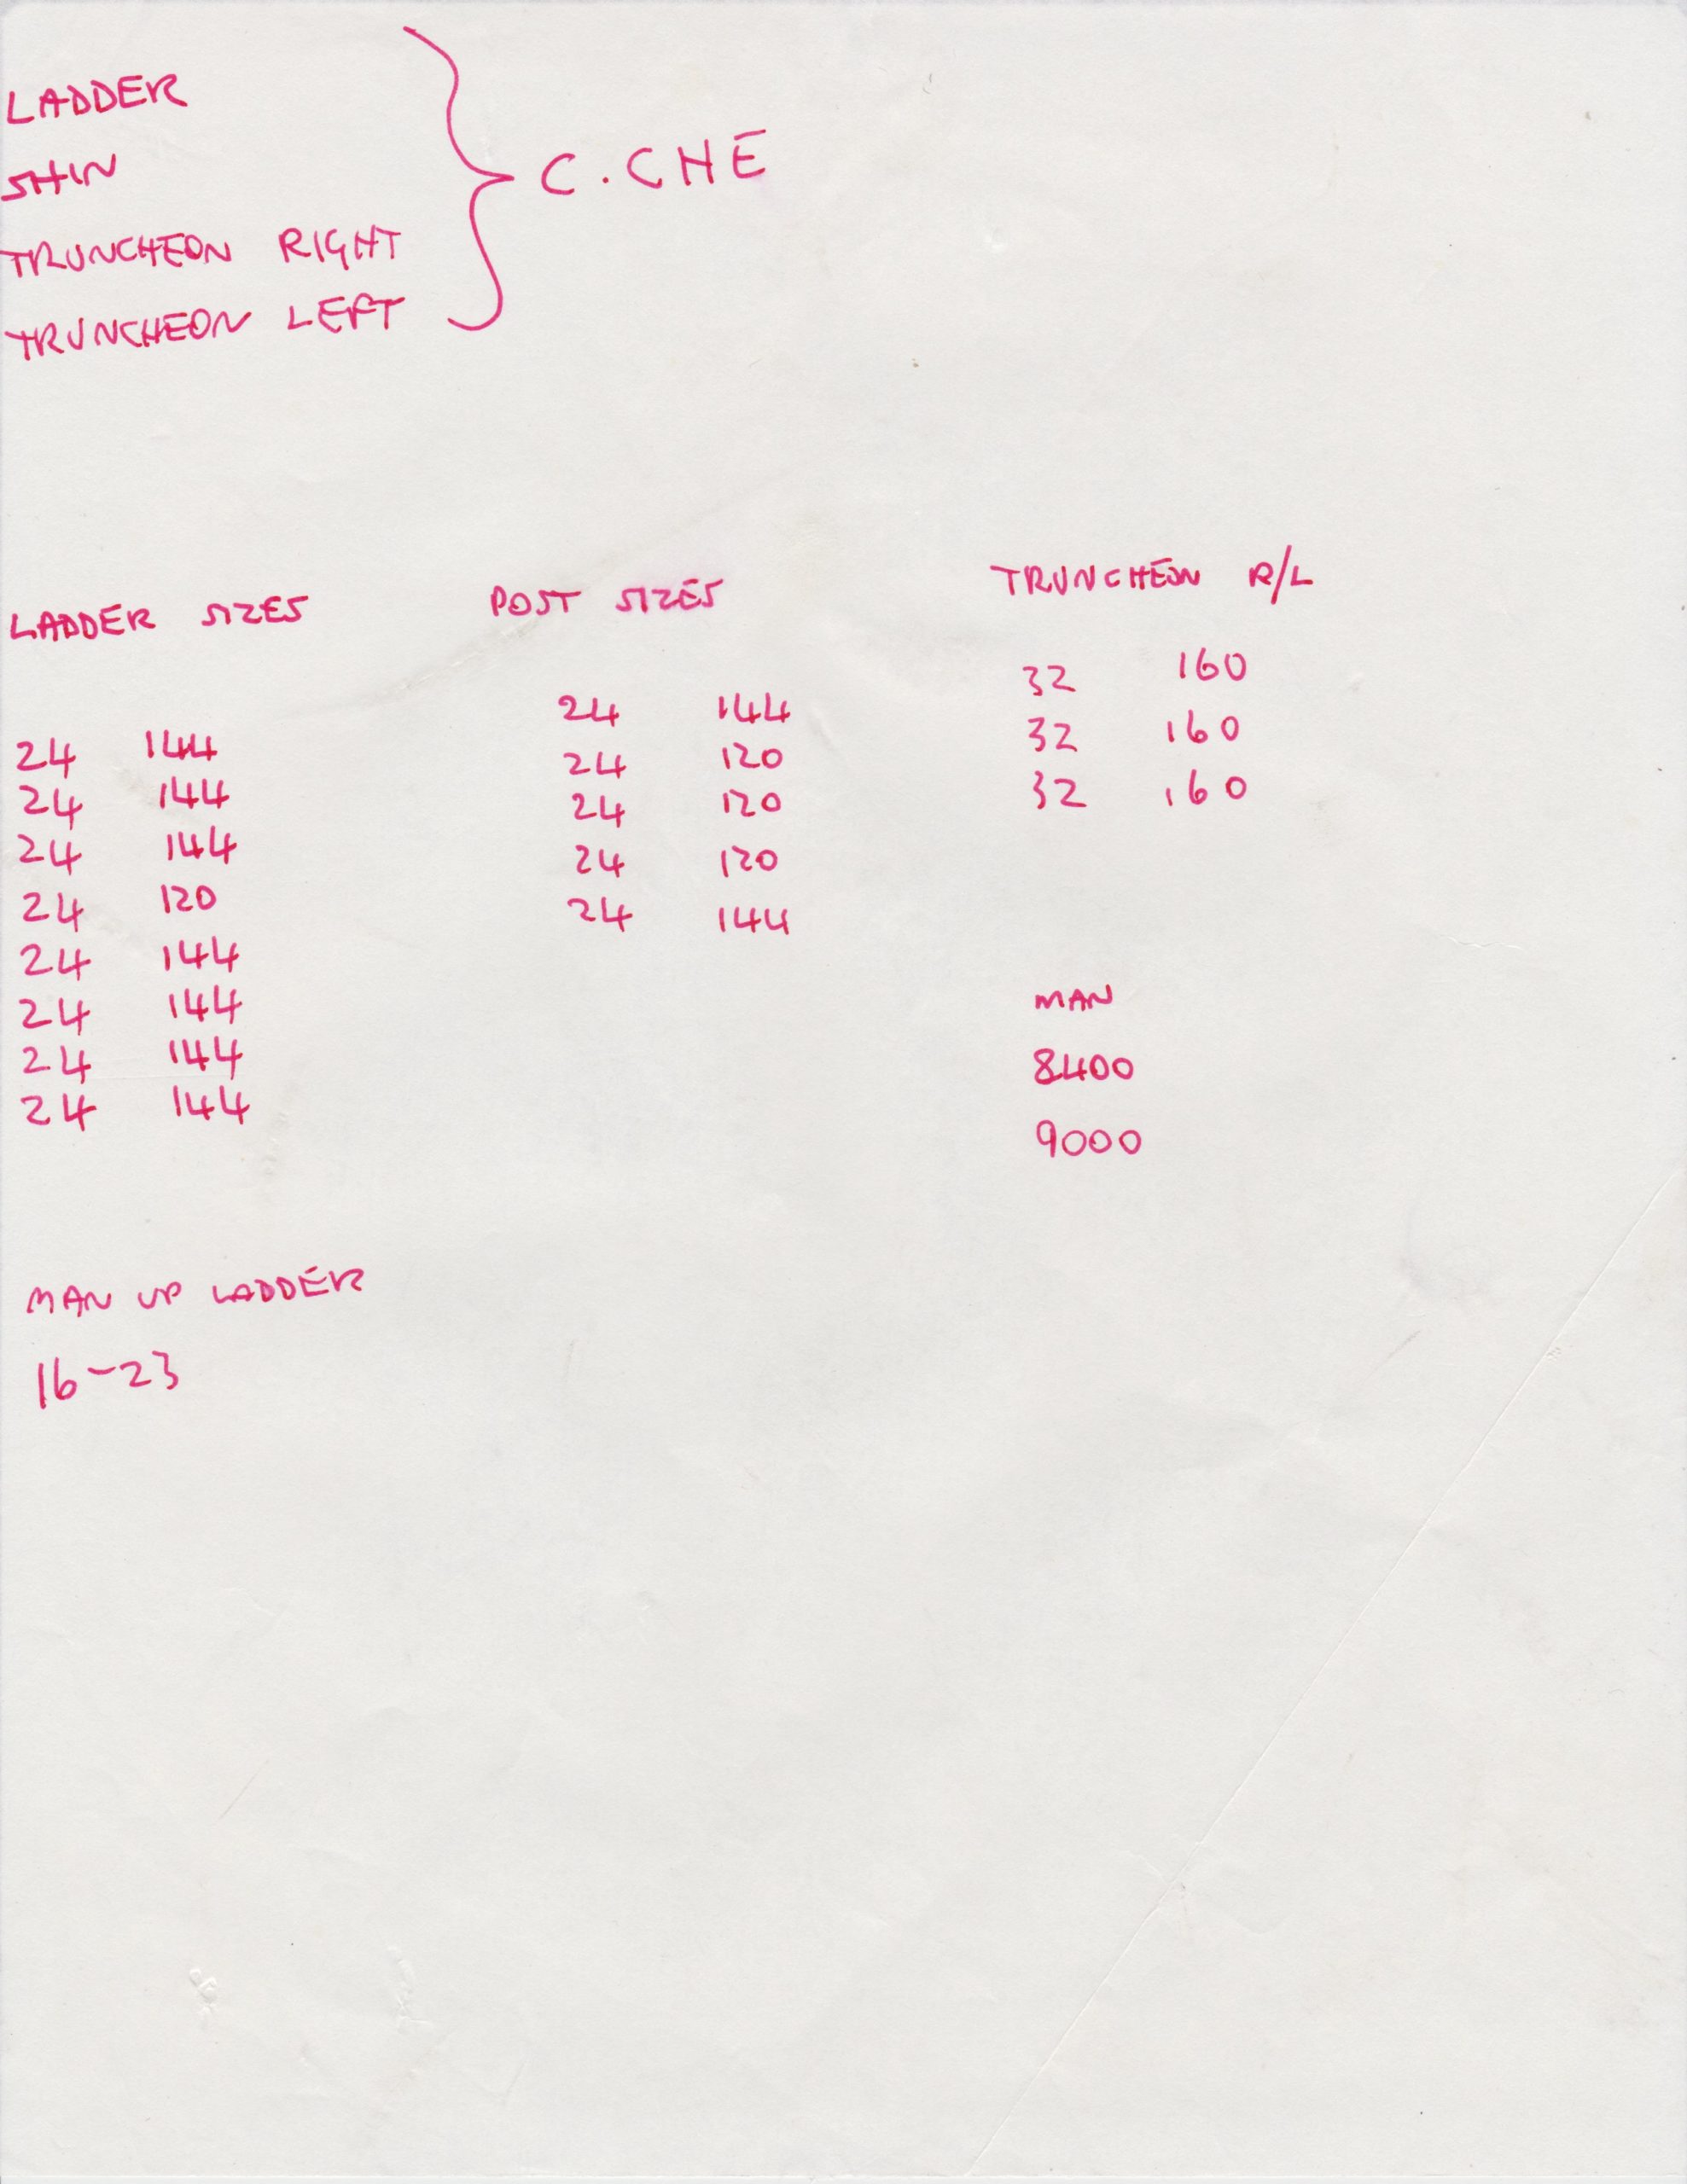 LADDER
SHIN
TRUNCHEON RIGHT
TRUNCHEON LEFT
C.CHE
LADDER SIZES
24 144
24 144
24 144
24 120
24 144
24 144
24 144
24 144
POST SIZES
24 144
24 120
24 120
24 120
24 144
TRUNCHEON R/L
32 160
32 160
32 160
MAN
8400
9000
MAN UP LADDER
16-23